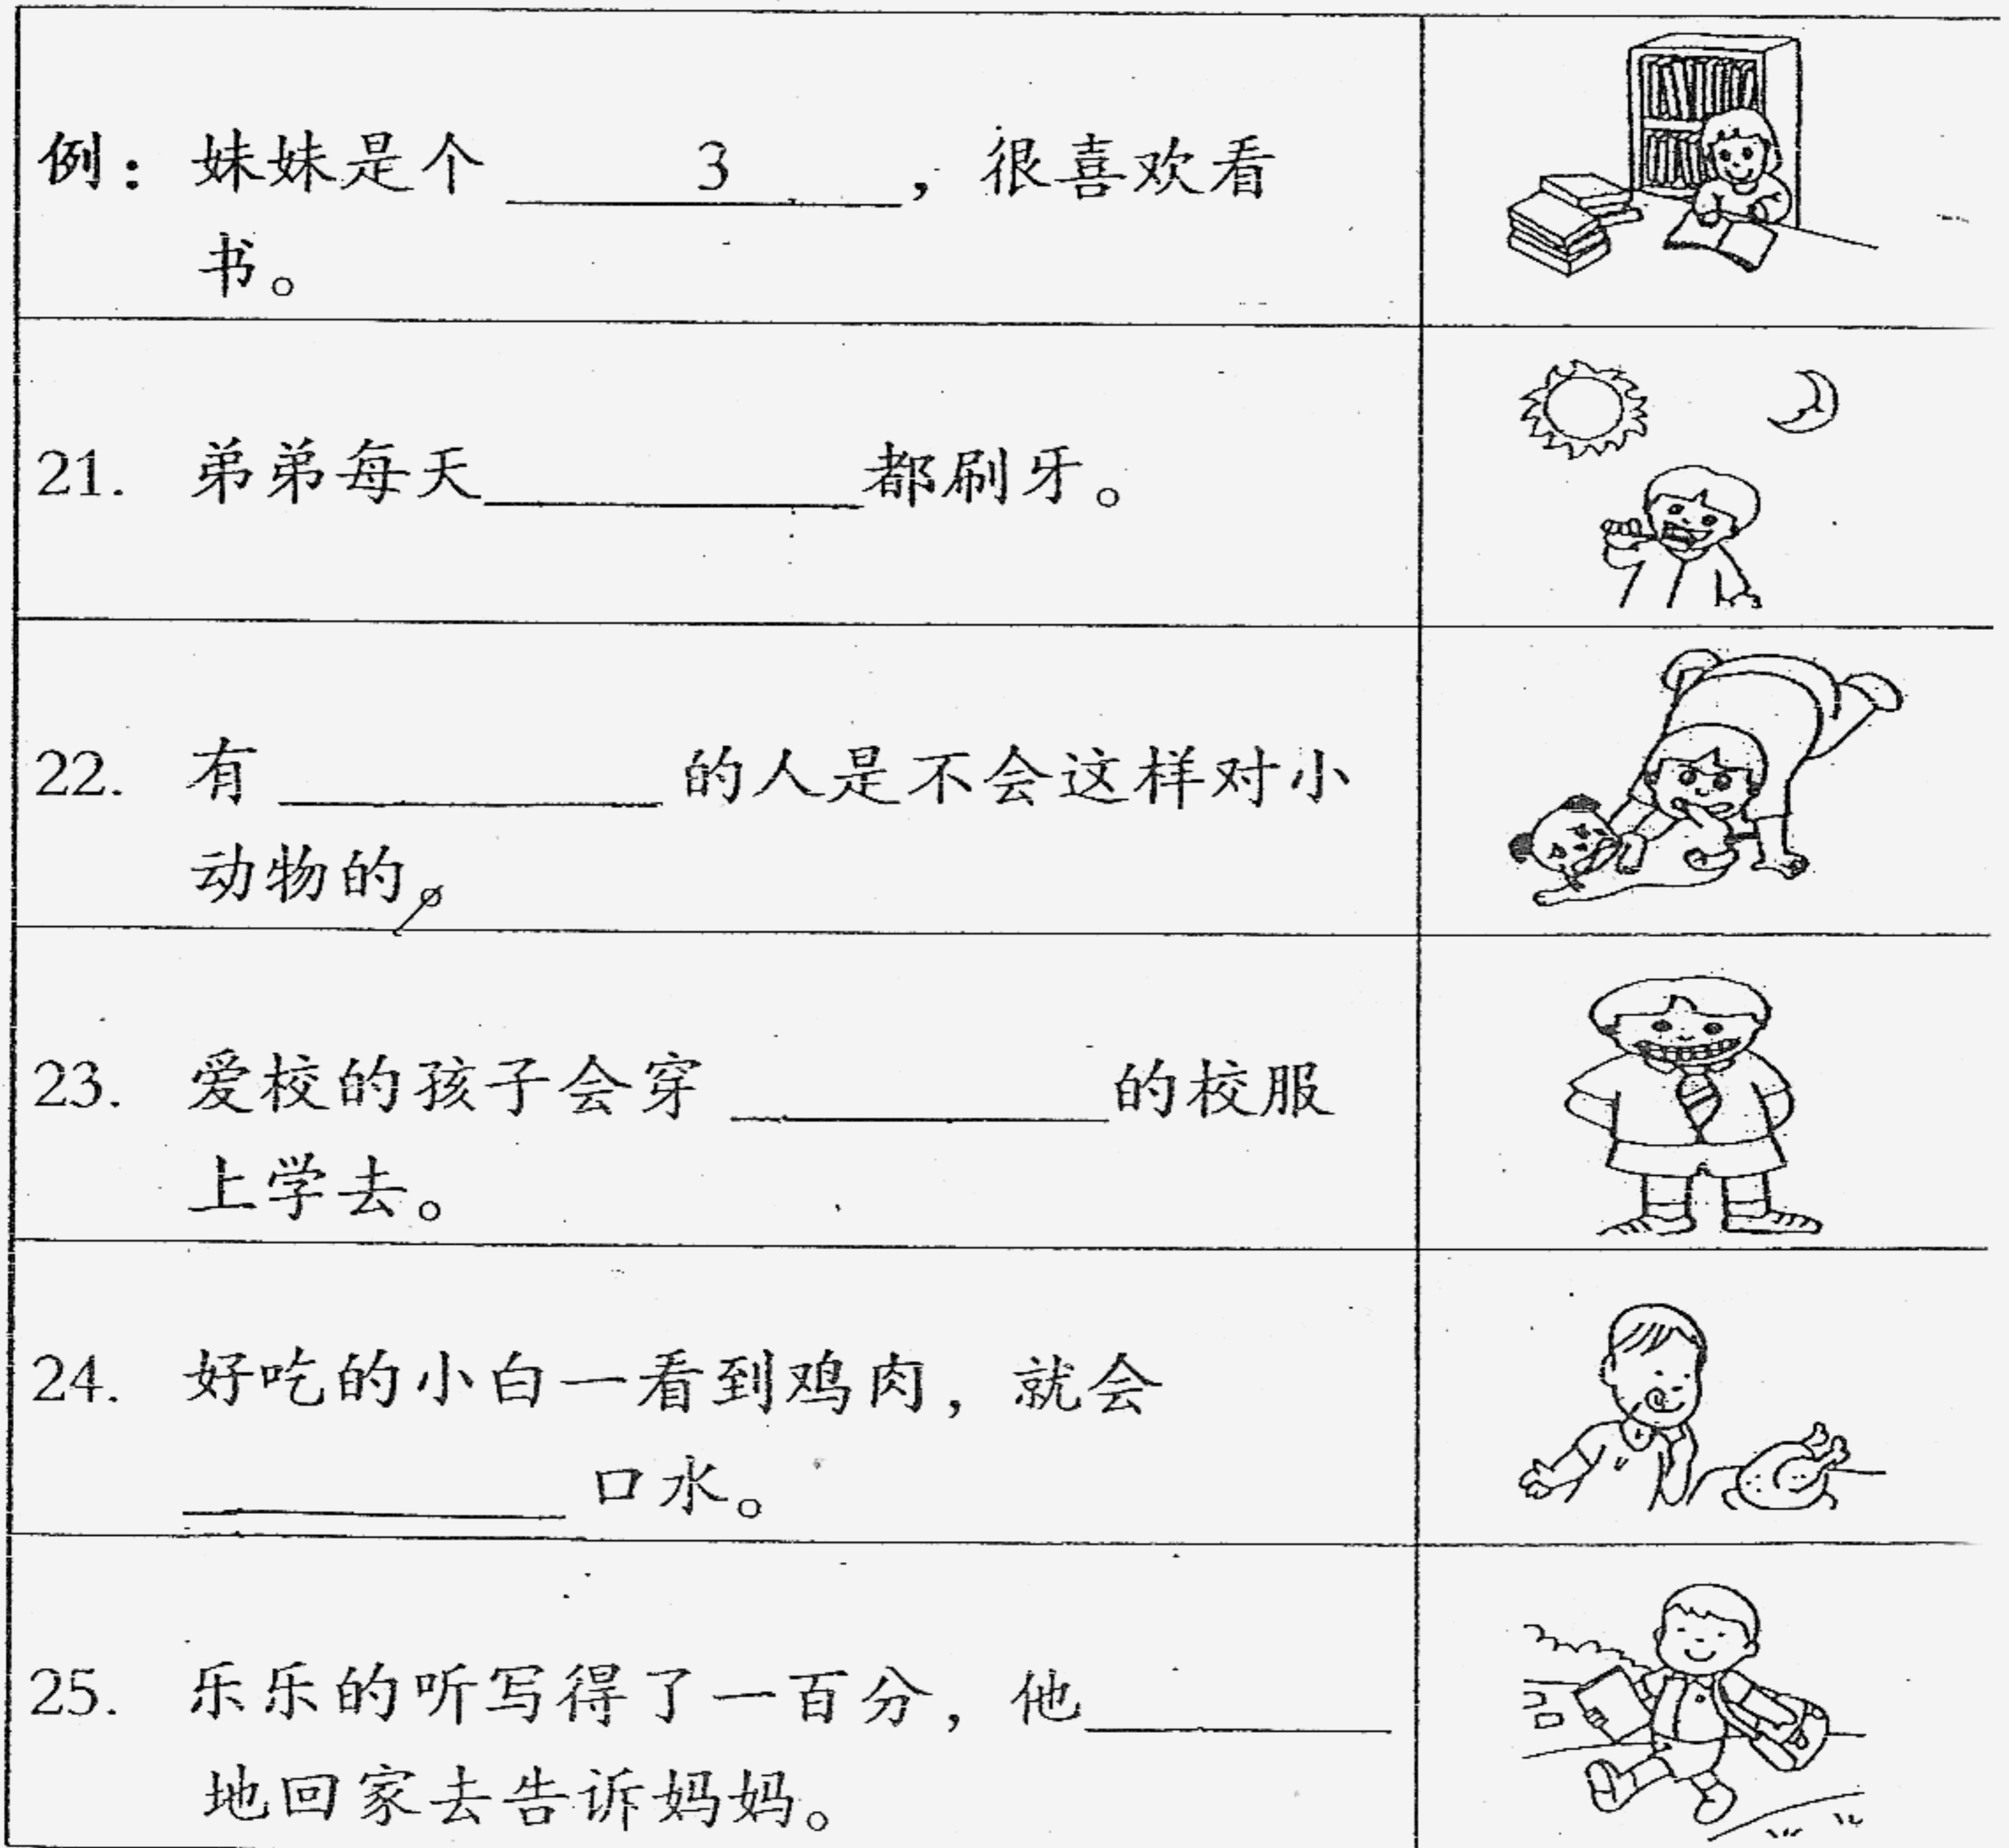 例：妹妹是个 3 ，很喜欢看
书。
21. 弟弟每天________都刷牙。
22. 有 ________ 的人是不会这样对小
动物的。
23. 爱校的孩子会穿 ________的校服
上学去。
24. 好吃的小白一看到鸡肉，就会
________ 口水。
25. 乐乐的听写得了一百分，他________
地回家去告诉妈妈。